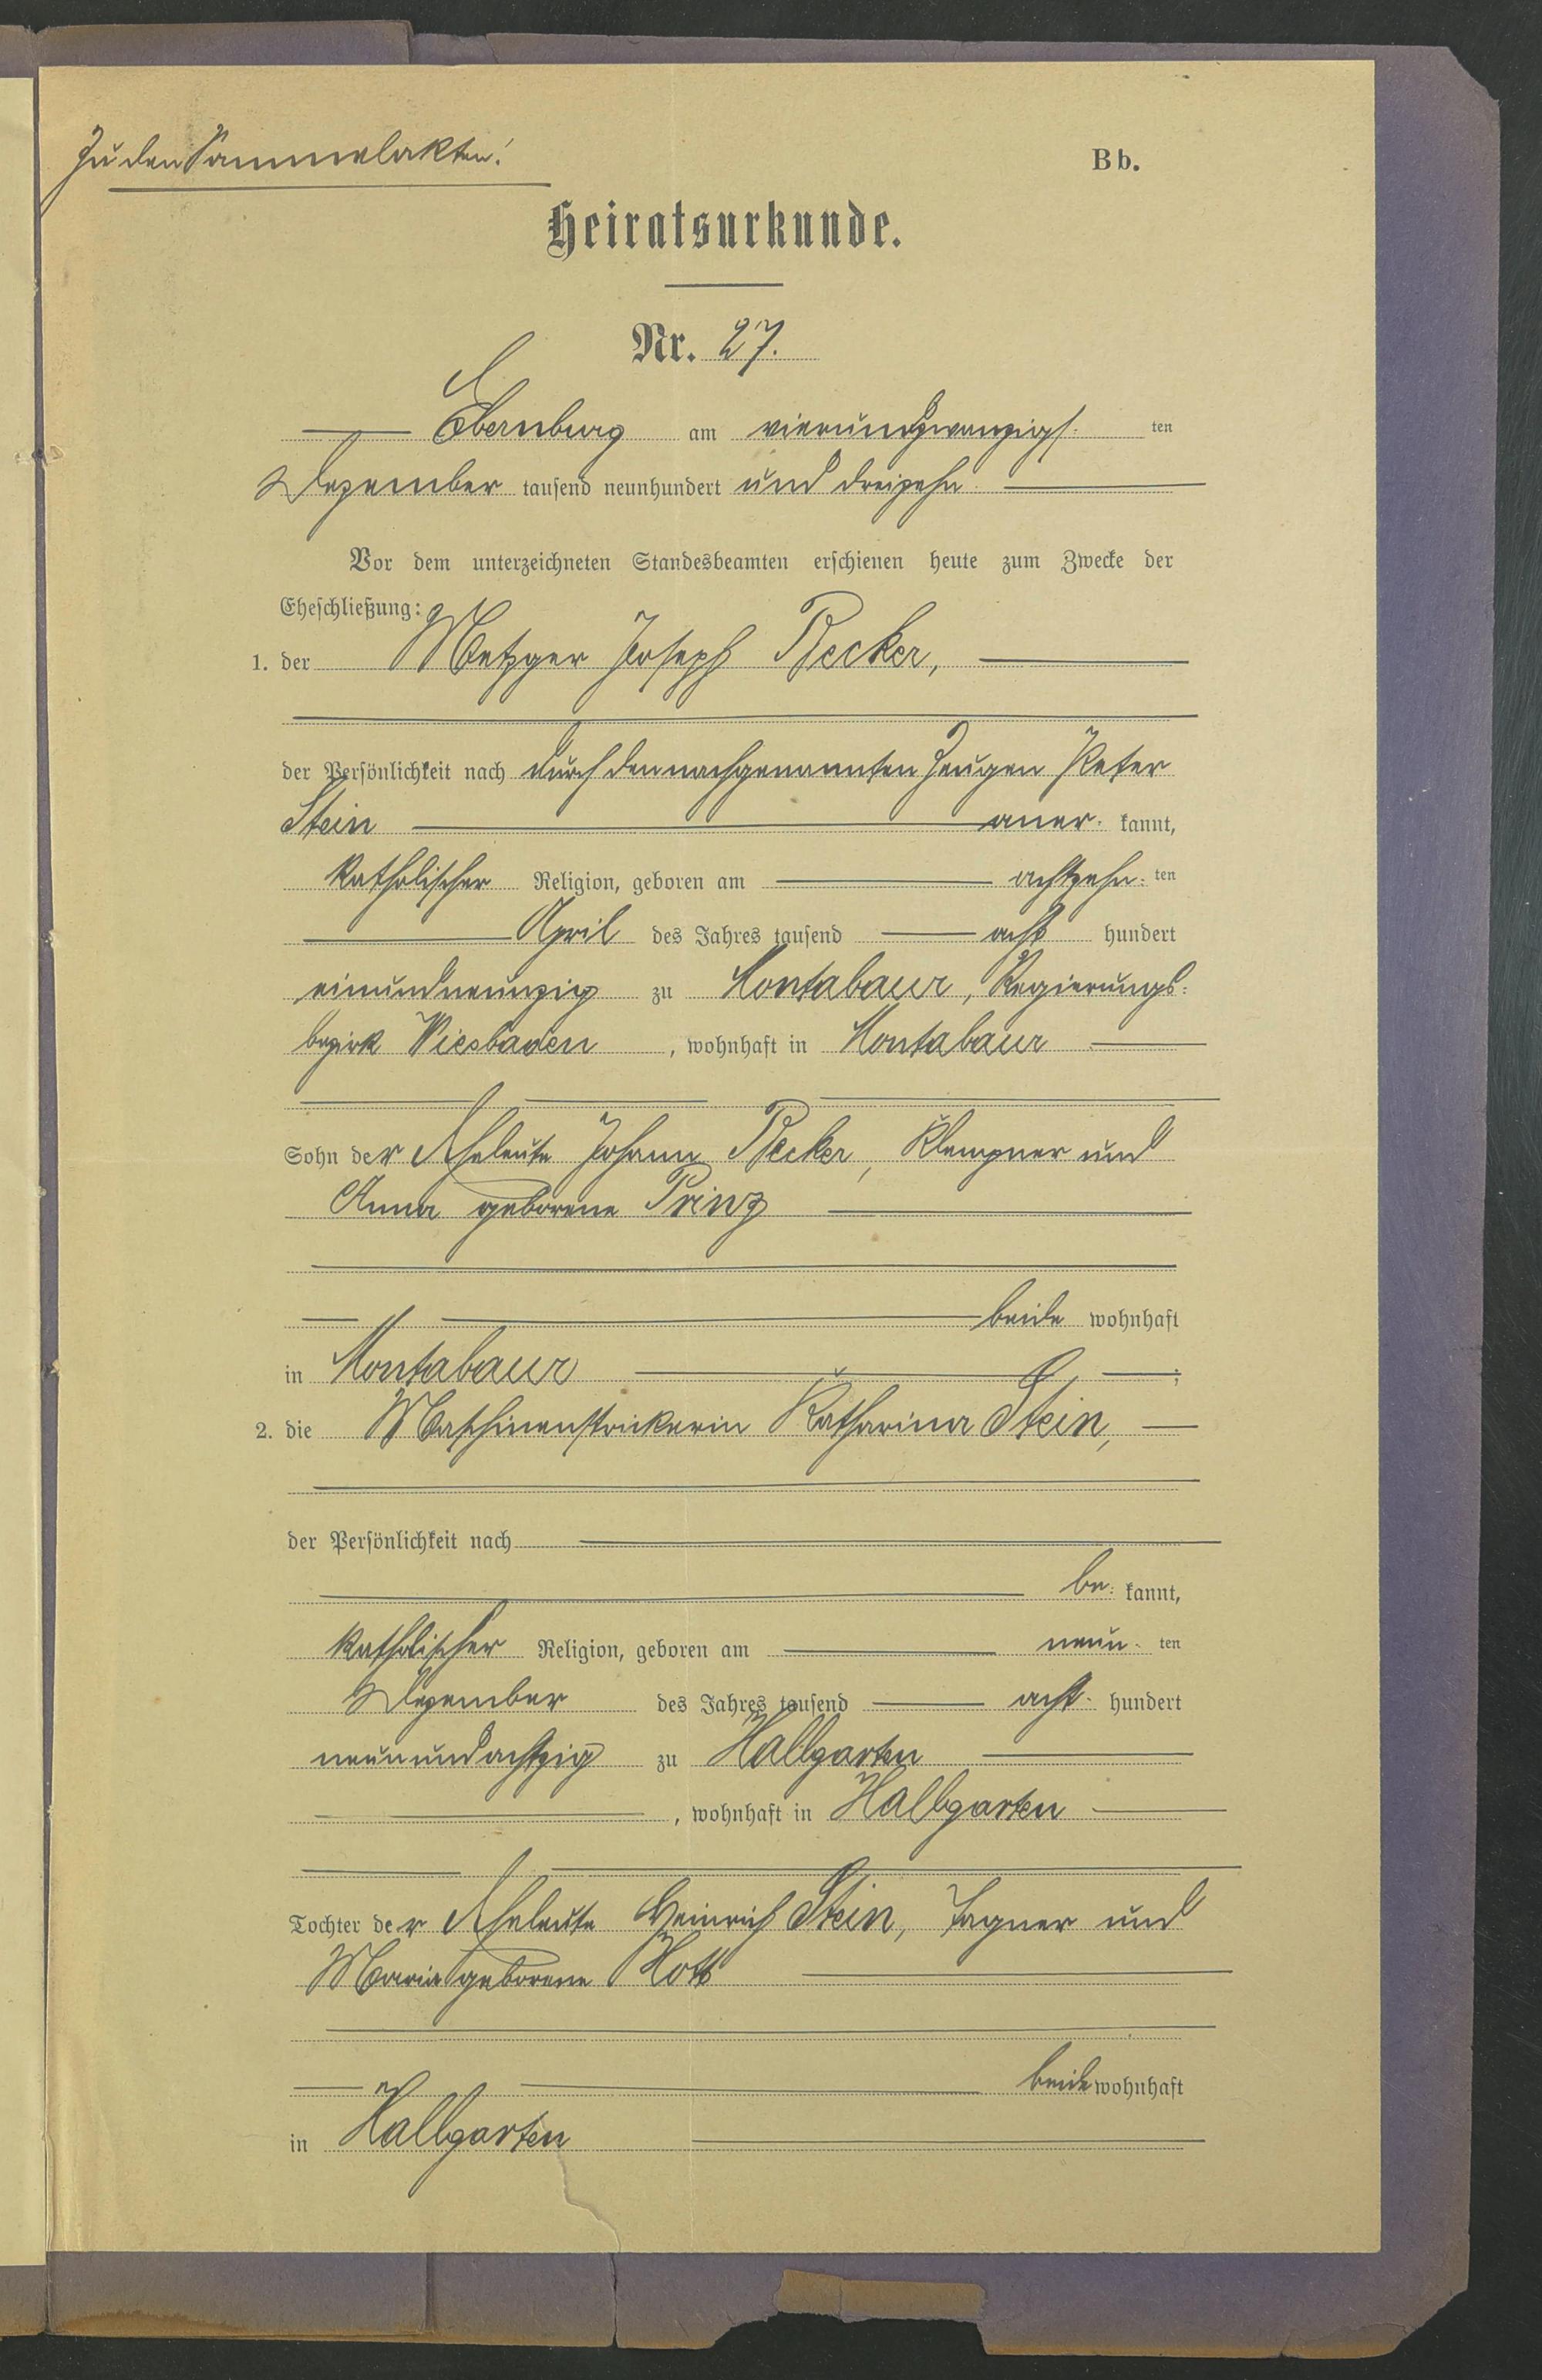 Zu den Sammelakten!
Bb.
Heiratsurkunde.
Nr. 27.
Ebernburg am vierundzwanzigs- ten
Dezember tausend neunhundert und dreizehn
Vor dem unterzeichneten Standesbeamten erschienen heute zum Zwecke der
Eheschließung:
1. der Metzger Joseph Becker,
der Persönlichkeit nach durch den nachgenannten Zeugen Peter
Stein aner- kannt,
katholischer Religion, geboren am achtzehn- ten
April des Jahres tausend acht hundert
einundneunzig zu Montabaur, Regierungs-
bezirk Wiesbaden, wohnhaft in Montabaur
Sohn der Eheleute Johann Becker, Klempner und
Anna geborene Prinz
beide wohnhaft
in Montabaur ;
2. die Maschinenstrickerin Katharina Stein,
der Persönlichkeit nach
be- kannt,
katholischer Religion, geboren am neun- ten
Dezember des Jahres tausend acht- hundert
neunundachtzig zu Hallgarten
, wohnhaft in Hallgarten
Tochter der Eheleute Heinrich Stein, Tagner und
Maria geborene Kott
beide wohnhaft
in Hallgarten